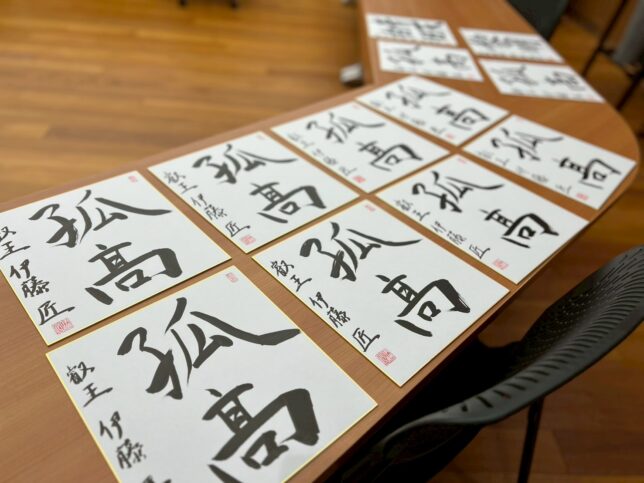 孤高
叡王 伊藤 匠
孤高
叡王 伊藤
孤高
叡王 伊藤 匠
孤高
叡王 伊藤 匠
孤高
叡王 伊藤 匠
孤高
叡王 伊藤 匠
孤高
叡王 伊藤 匠
孤高